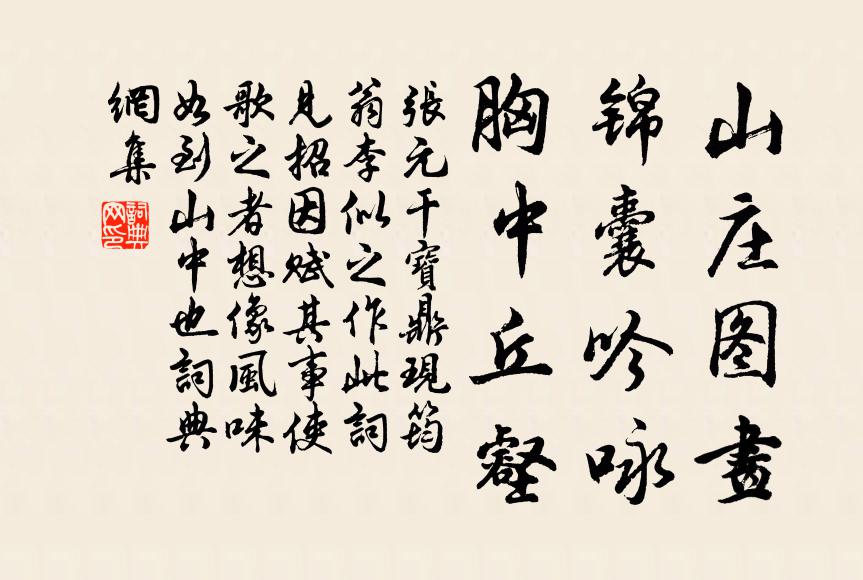 山庄图畫
锦囊吟咏
胸中丘壑
張元干寶鼎現筠
翁李似之作此詞
見招因赋其事使
歌之者想像風味
如到山中也詞典
網集
詞典
网印